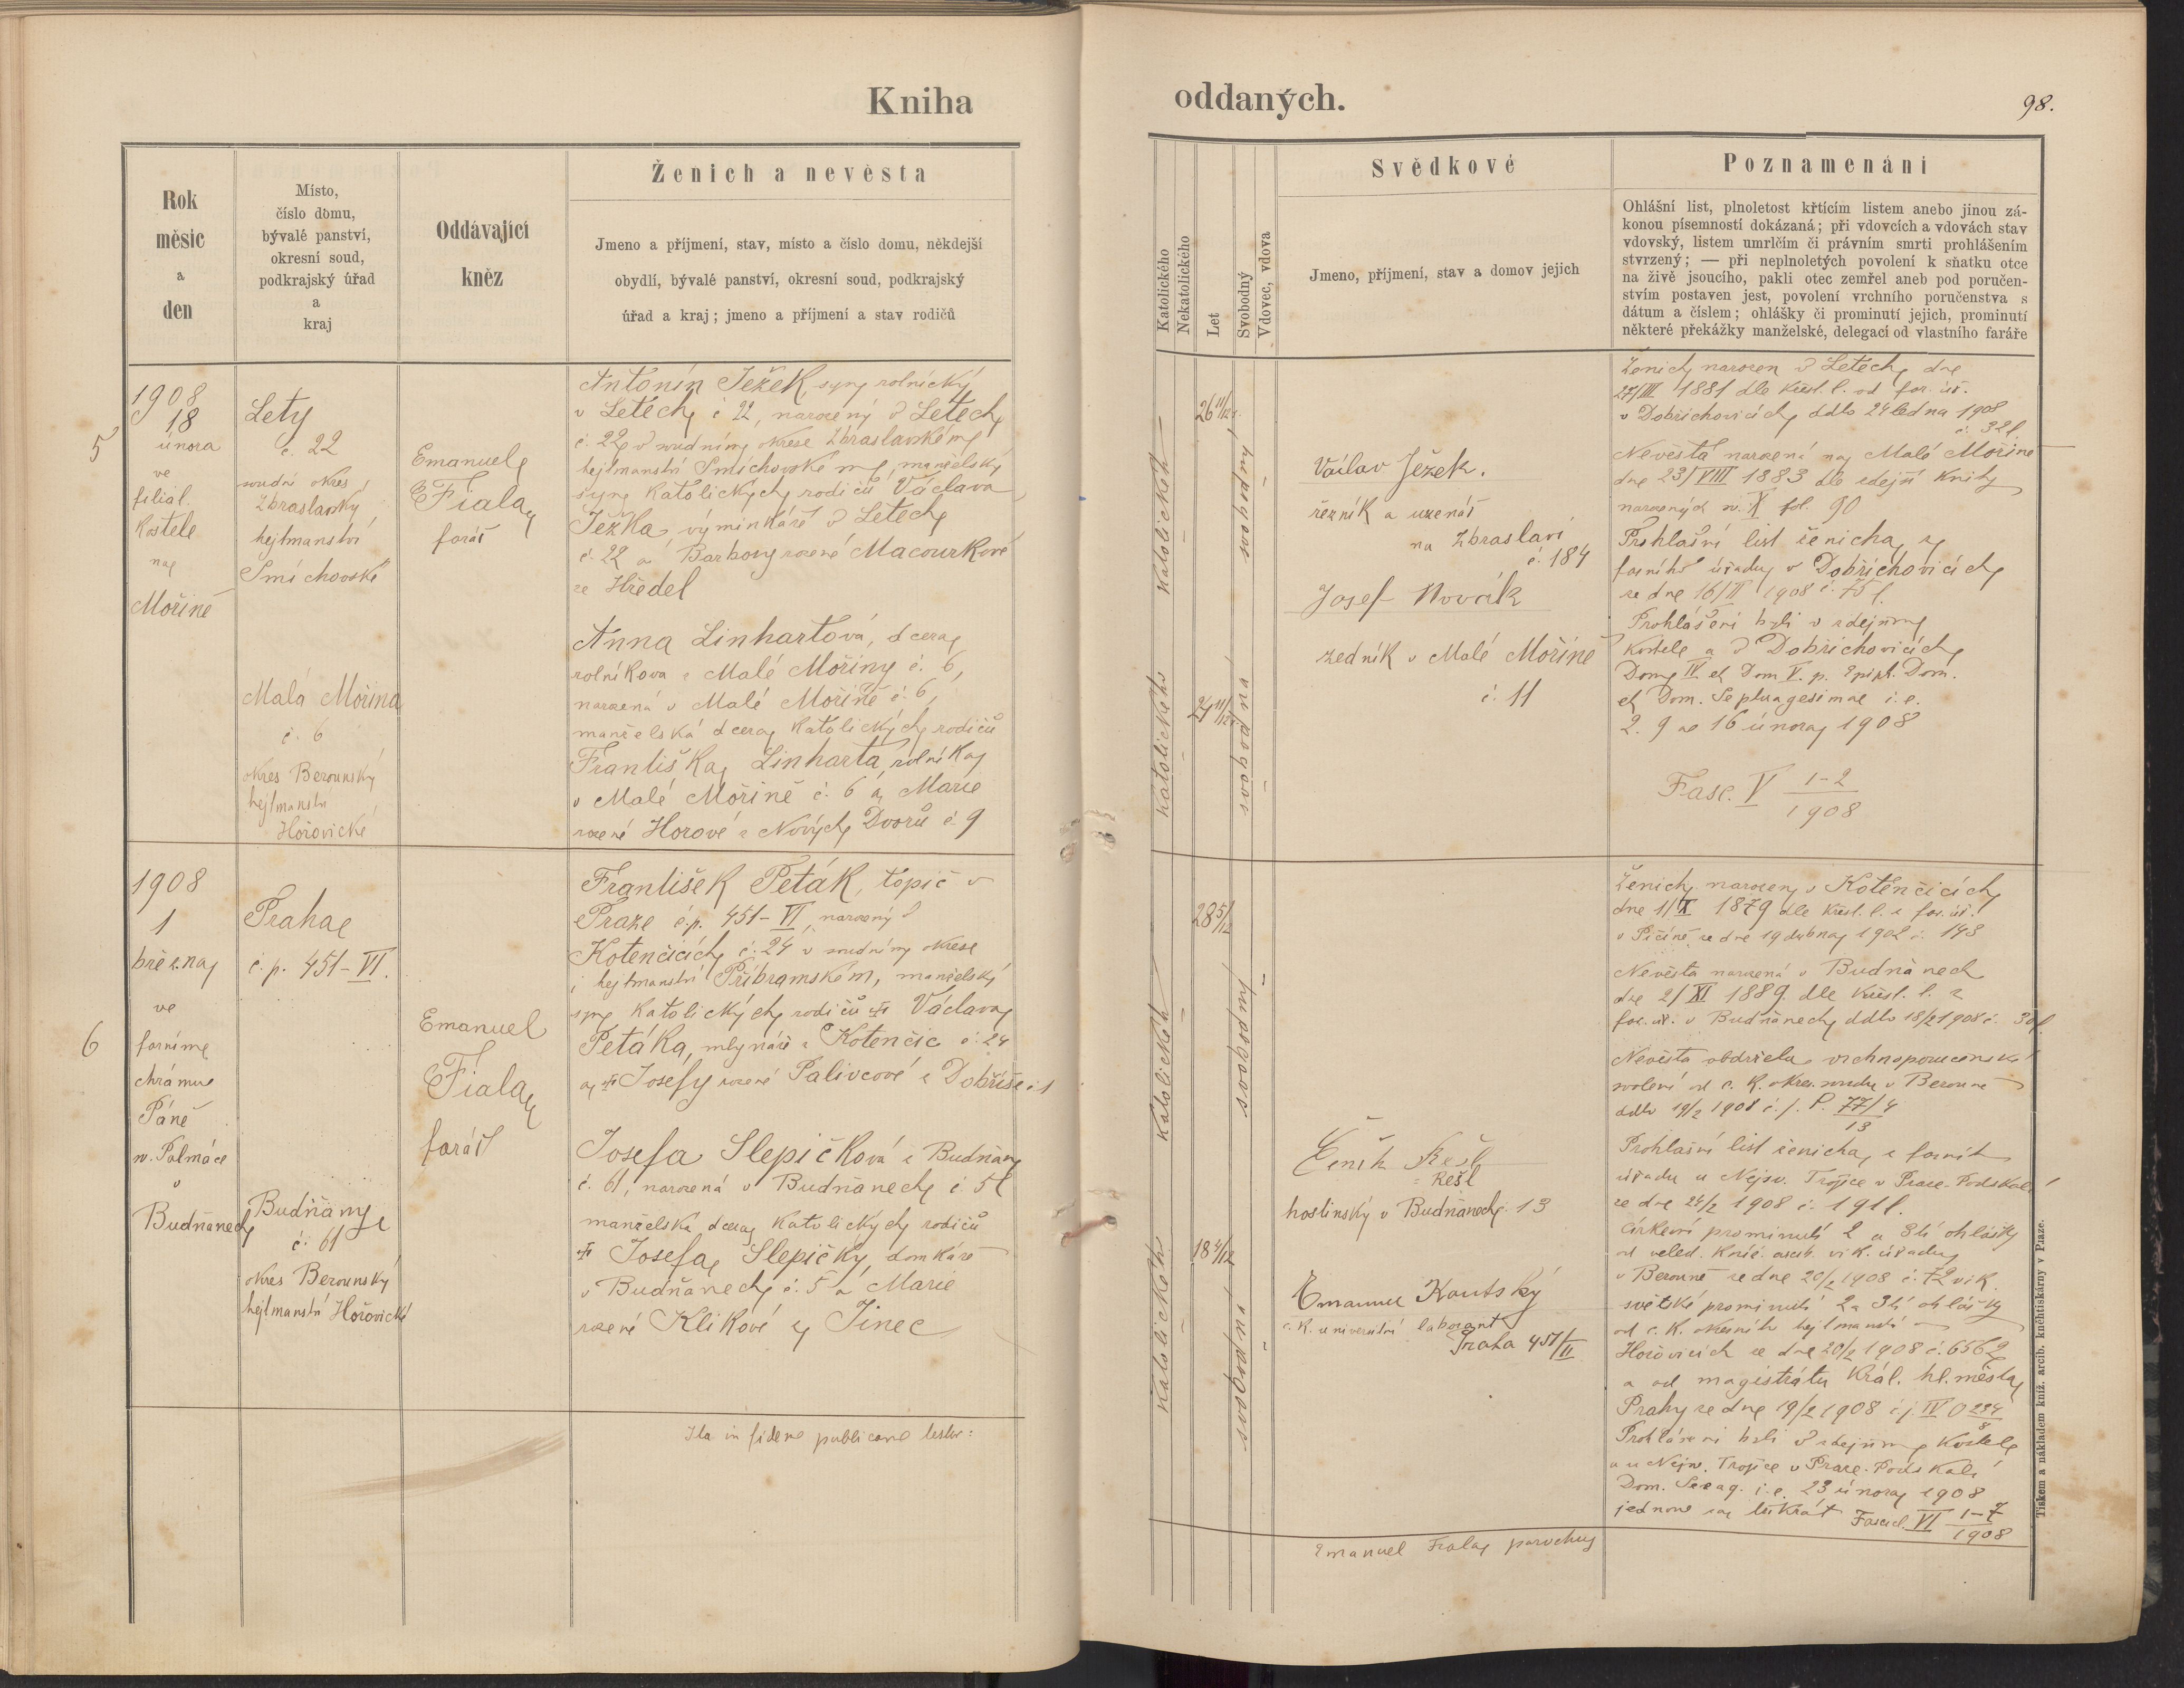 Kniha
oddaných.
98.
Rok
měsíc
a
den
Místo,
číslo domu,
bývalé panství,
okresní soud,
podkrajský úřad
a
kraj
Oddávající
kněz
Ženich a nevěsta
Jmeno a příjmení, stav, místo a číslo domu, někdejší
obydlí, bývalé panství, okresní soud, podkrajský
úřad a kraj; jmeno a příjmení a stav rodičů
Katolického
Nekatolického
Let
Svobodný
Vdovec, vdova
Svědkové
Jmeno, příjmení, stav a domov jejich
Poznamenání
Ohlášní list, plnoletost křticím listem anebo jinou zá-
konou písemností dokázaná; při vdovcích a vdovách stav
vdovský, listem umrlčím či právním smrti prohlášením
stvrzený; — při neplnoletých povolení k sňatku otce
na živě jsoucího, pakli otec zemřel aneb pod poručen-
stvím postaven jest, povolení vrchního poručenstva s
dátum a číslem; ohlášky či prominutí jejich, prominutí
některé překážky manželské, delegací od vlastního faráře
5
1908
18
února
ve
filiál.
kostele
na
Mořině
Lety
č. 22
soudní okres
Zbraslavský
hejtmanství
Smíchovské
Malá Mořina
č. 6
okres Berounský
hejtmanství
Hořovické
Emanuel
Fiala
farář
Antonín Ježek, syn rolnický
v Letech č 22, narozený v Letech
č. 22 v soudním okrese Zbraslavském
hejtmanství Smíchovském, manželský
syn katolických rodičů Václava
Ježka výminkáře v Letech
č. 22 a Barbory rozené Macourkové
ze Hředel
Anna Linhartová, dcera
rolníkova z Malé Mořiny č. 6,
narozená v Malé Mořině č. 6,
manželská dcera katolických rodičů
Františka Linharta, rolníka
v Malé Mořině č. 6 a Marie
rozené Horové z Nových Dvorů č. 9
katolického
26 11/12
svobodný
katolického
24 11/12
svobodná
Václav Ježek.
řezník a uzenář
na Zbraslavi
č. 184
Josef Novák
zedník v Malé Mořině
č. 11
Ženich narozen v Letech dne
27/III 1881 dle křest. l. od far. úř.
v Dobřichovicích ddto 24 ledna 1908
č. 32
Nevěsta narozená na Malé Mořině
dne 23/VIII 1883 dle zdejší knihy
narozených sv. X fol. 90
Prohlašní list ženicha z
farního úřadu v Dobřichovicích
ze dne 16/II 1908 č. 75
Prohlášeni byli v zdejším
kostele a v Dobřichovicích
Dom. IV et Dom V. p. Epiph. Dom.
et Dom. Septuagesimae i. e.
2. 9 a 16 února 1908
Fasc. V 1-2
1908
6
1908
1
března
ve
farním
chrámu
Páně
sv. Palmáce
v
Budňanech
Praha
č. p. 451-VI.
Budňany
č. 61
okres Berounský
hejtmanství Hořovické
Emanuel
Fiala
farář
František Peták, topič v
Praze č.p. 451-VI, narozený v
Kotenčicích č. 24 v soudním okrese
i hejtmanství Příbramském, manželský
syn katolických rodičů Václava
Petáka, mlynáře z Kotenčic č. 24
a Josefy rozené Palivcové z Dobříše č 1
Josefa Slepičková z Budňan
č. 61, narozená v Budňanech č. 5
manželská dcera katolických rodičů
Josefa Slepičky, domkáře
v Budňanech č. 5 a Marie
rozené Klikové z Jinec
katolického
28 5/12
svobodný
katolického
18 4/12
svobodná
Čeněk Rešl
= Rešl
hostinský v Budňanech 13
Emanuel Kautský
c. k. universitní laborant
Praha 451/II
Ženich narozen v Kotenčicích
dne 11/X 1879 dle křest. l. z far. úř.
v Pičíně ze dne 19 dubna 1902 č. 143
Nevěsta narozená v Budňanech
dne 2/XI 1889 dle křest. l. z
far. úř. v Budňanech ddto 18/2 1908 č.
Nevěsta obdržela vrchnoporučenské
svolení od c. k. okres. soudu v Berouně
ddto 19/2 1908 č. j. P. 77/4
13
Prohlašní list ženicha z farního
úřadu u Nejsv. Trojice v Praze-Podskalí
ze dne 24/2 1908 č. 191
Církevní prominutí 2 a 3tí ohlášky
od veled. kníž. arcib. vik. úřadu
v Berouně ze dne 20/2 1908 č. 72 vik.
světské prominutí 2 a 3tí ohlášky
od c. k. okresního hejtmanství
Hořovicích ze dne 20/2 1908 č. 6562
a od magistrátu král. hl. města
Prahy ze dne 19/2 1908 č. j. IV
Prohlášeni byli v zdejším kostele
a u Nejsv. Trojice v Praze-Podskalí
Dom. Sexag. i. e. 23 února 1908
jednou za třikrát Fascicl. VI 1-7
1908
Ita in fidem publicam testor:
Emanuel Fiala parochus
Tiskem a nákladem kníž. arcib. knihtiskárny v Praze.